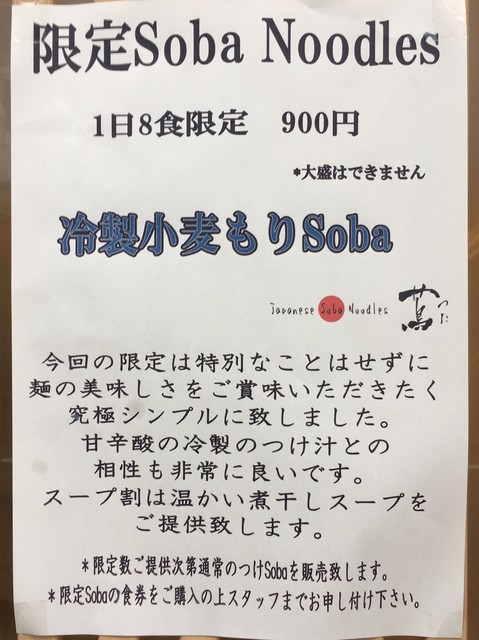 限定Soba Noodles
1日8食限定 900円
*大盛はできません
冷製小麦もりSoba
Japanese Soba Noodles 蔦 つた
今回の限定は特別なことはせずに
麺の美味しさをご賞味いただきたく
究極シンプルに致しました。
甘辛酸の冷製のつけ汁との
相性も非常に良いです。
スープ割は温かい煮干しスープを
ご提供致します。
*限定数ご提供次第通常のつけSobaを販売致します。
*限定Sobaの食券をご購入の上スタッフまでお申し付け下さい。